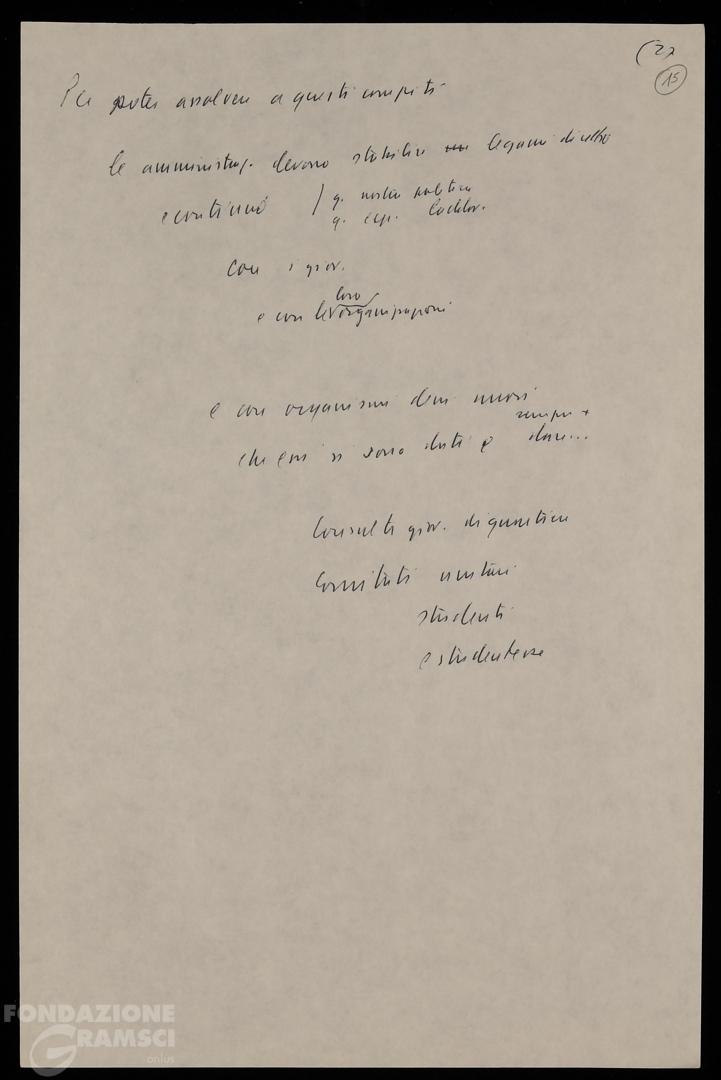 (2)
15
Per poter assolvere a questi compiti
le amministraz. devono stabilire legami diretti
e continui / q. nostra politica
q. esp.
con i giov.
loro
e con le organizzazioni
e con organismi dem nuovi
sempre +
che essi si sono dati e
Consulte giov. di quartiere
Comitati unitari
studenti
e studentesse
FONDAZIONE
GRAMSCI
onlus